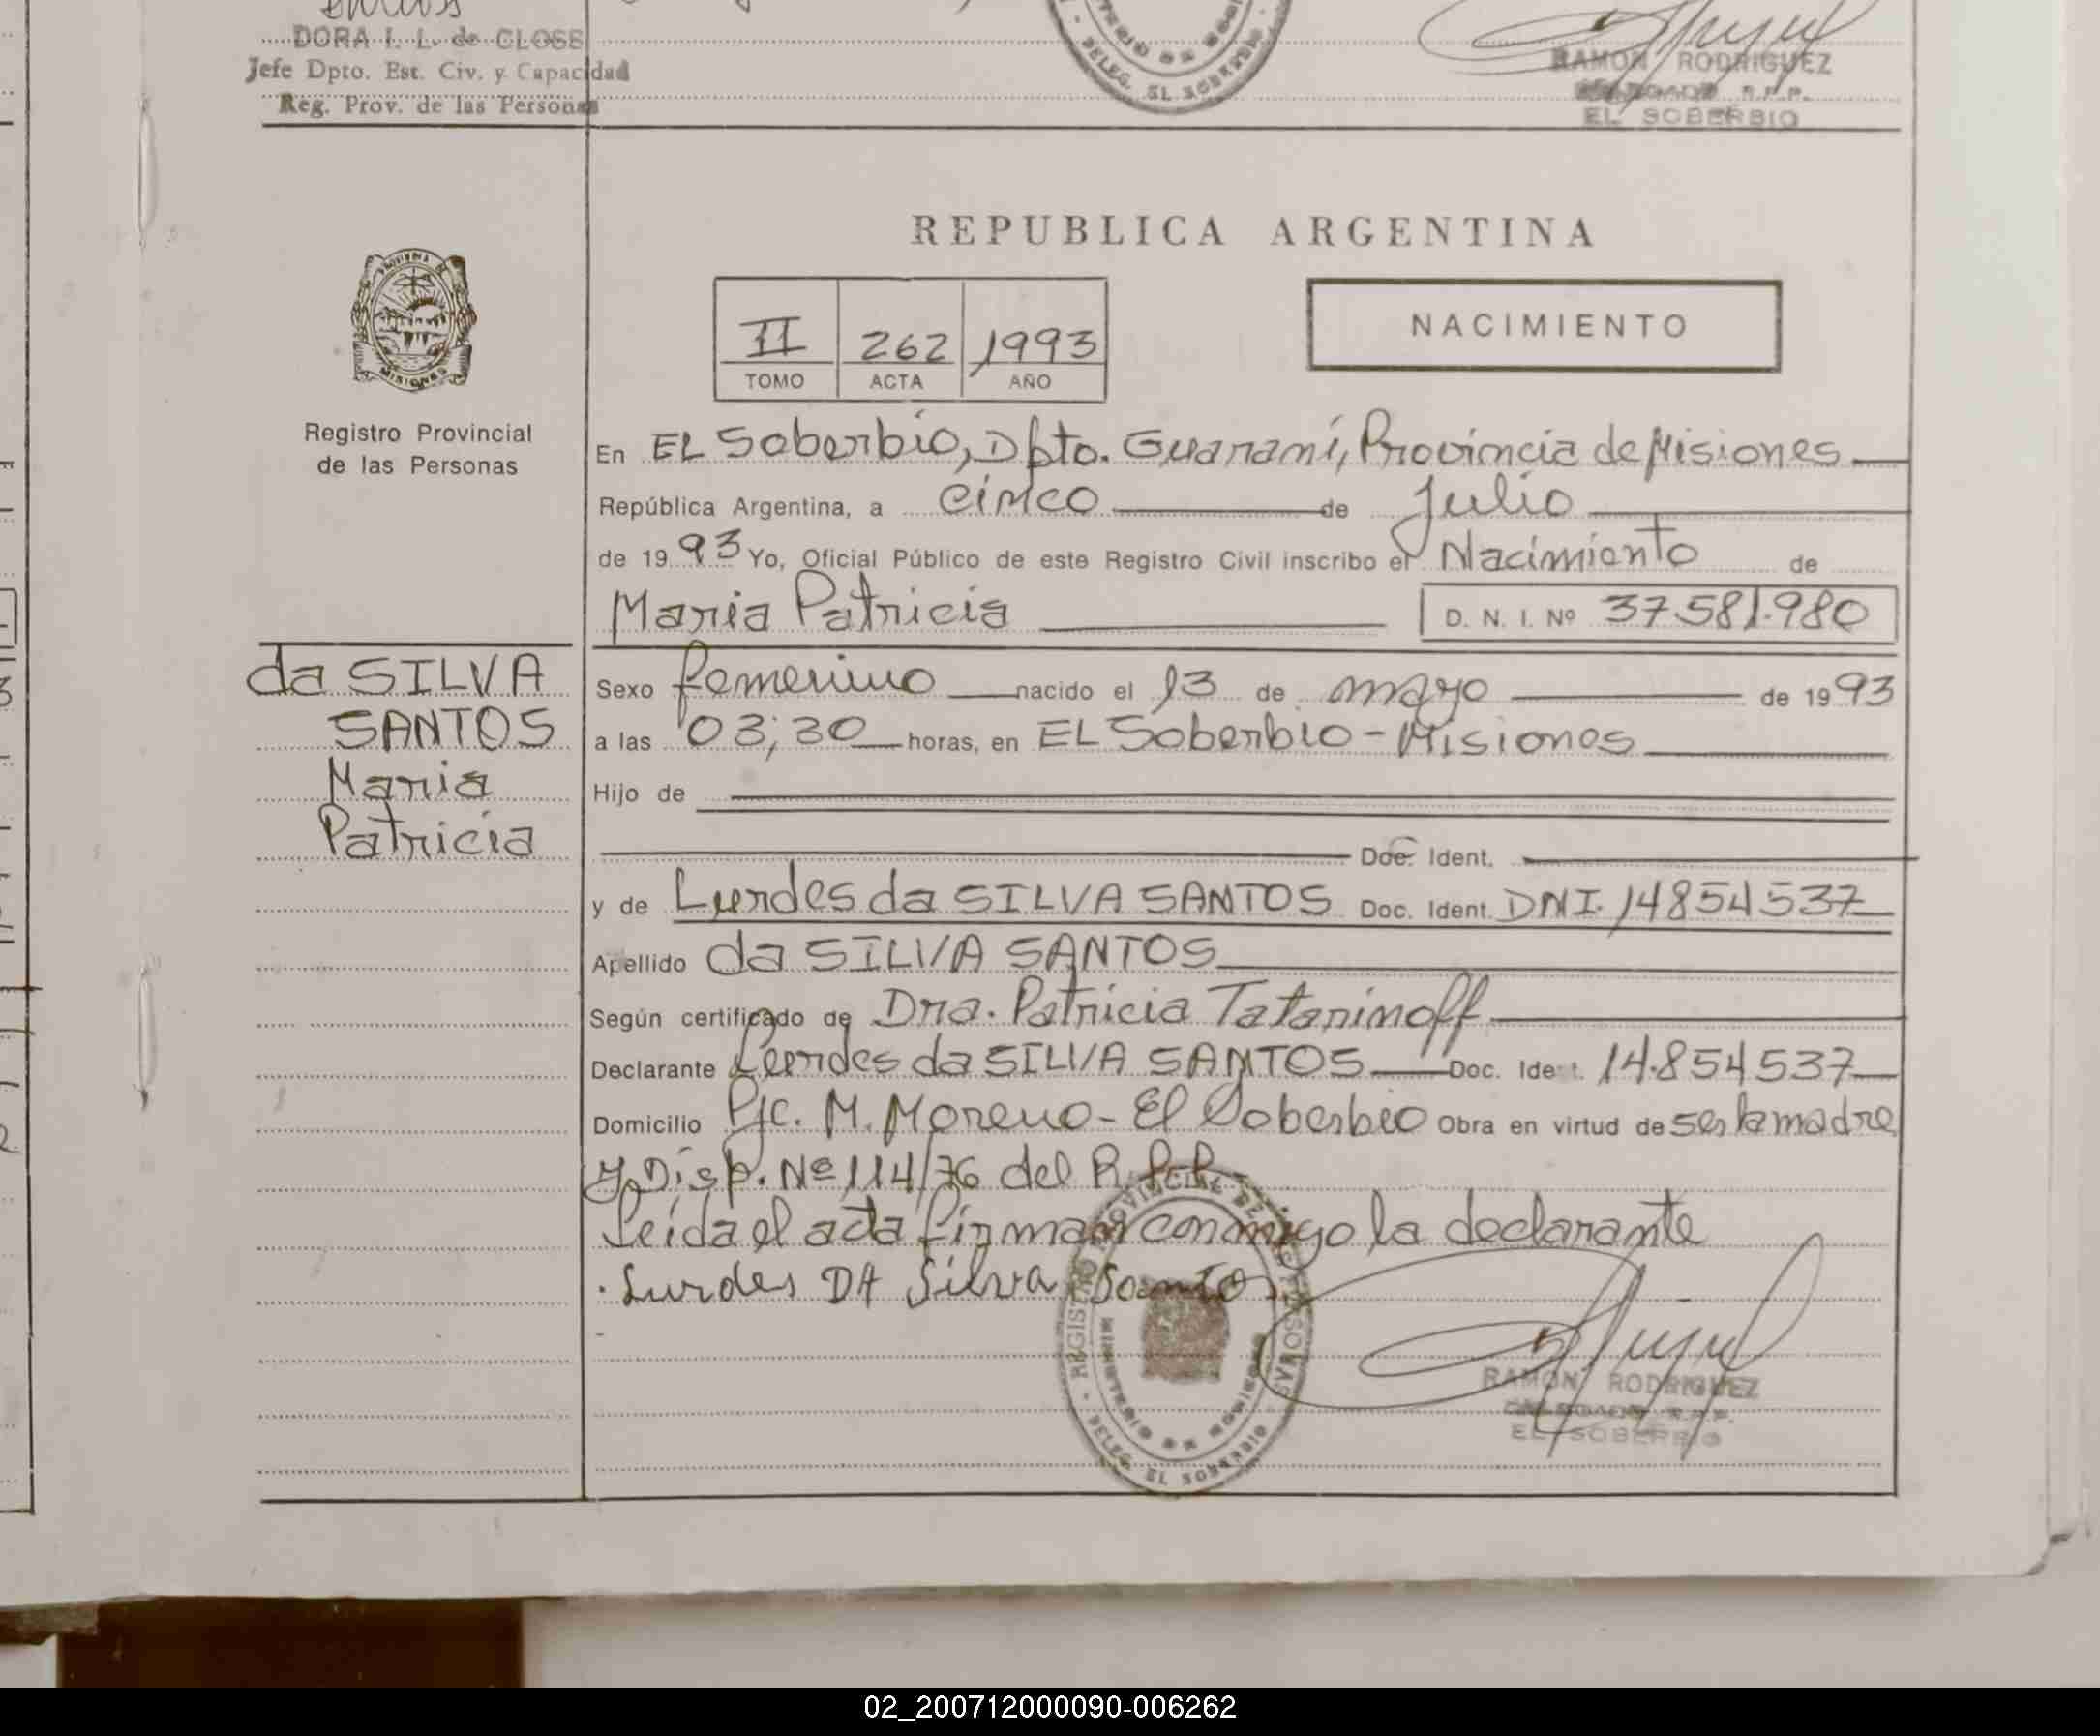 DORA I. L. de CLOSS
Jefe Dpto. Est. Civ. y Capacidad
Reg. Prov. de las Personas
DELEG. EL SOBERBIO
RAMON RODRIGUEZ
DELEGADO R.P.P.
EL SOBERBIO
REPUBLICA ARGENTINA
PROVINCIA DE
MISIONES
II 262 1993
TOMO ACTA AÑO
NACIMIENTO
Registro Provincial
de las Personas
En EL Soberbio, Dpto. Guaraní, Provincia de Misiones
República Argentina, a cinco de Julio
de 1993 Yo, Oficial Público de este Registro Civil inscribo el Nacimiento de
Maria Patricia D. N. I. Nº 37.581.980
da SILVA
SANTOS
Maria
Patricia
Sexo femenino nacido el 13 de mayo de 1993
a las 03;30 horas, en EL Soberbio - Misiones
Hijo de
Doc. Ident.
y de Lurdes da SILVA SANTOS Doc. Ident. DNI. 14854537
Apellido da SILVA SANTOS
Según certificado de Dra. Patricia Tataninoff
Declarante Lurdes da SILVA SANTOS Doc. Ident. 14.854537
Domicilio Pje. M. Moreno - El Soberbio Obra en virtud de ser la madre
y Disp. Nº 114/76 del R.P.P.
Leída el acta firman conmigo la declarante
Lurdes DA Silva Santo
REGISTRO PROVINCIAL DE LAS PERSONAS
MINISTERIO DE GOBIERNO
DELEG. EL SOBERBIO
RAMON RODRIGUEZ
DELEGADO R.P.P.
EL SOBERBIO
02_200712000090-006262